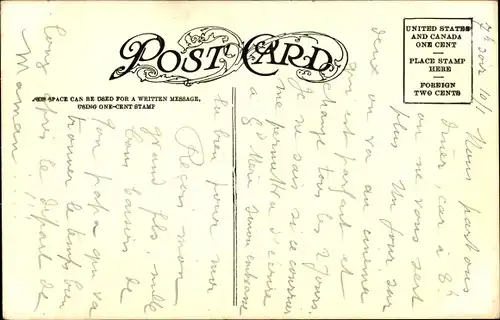 POST CARD
THIS SPACE CAN BE USED FOR A WRITTEN MESSAGE,
USING ONE-CENT STAMP
UNITED STATES
AND CANADA
ONE CENT
PLACE STAMP
HERE
FOREIGN
TWO CENTS
7h soir 10/1 Nous partons
dîner, car à 8h
on ne vous sert
plus. Un jour sur
deux on va au cinéma
qui est parfait et
change tous les 2 jours.
Je ne sais si ce courrier
me permettra d'écrire
à Gd Mère sinon embrasse
la bien pour moi
Reçois mon
grand fils, mille
bons baisers de
ton papa qui va
trouver le temps bien
long après le départ de
Maman !!!